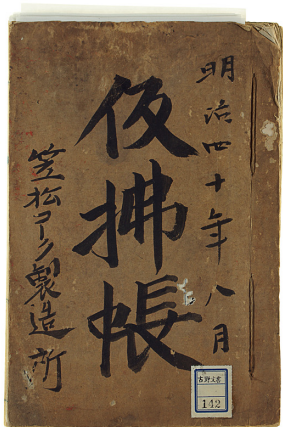 明治四十年八月
仮拂帳
笠松コークス製造所
古野文書
142